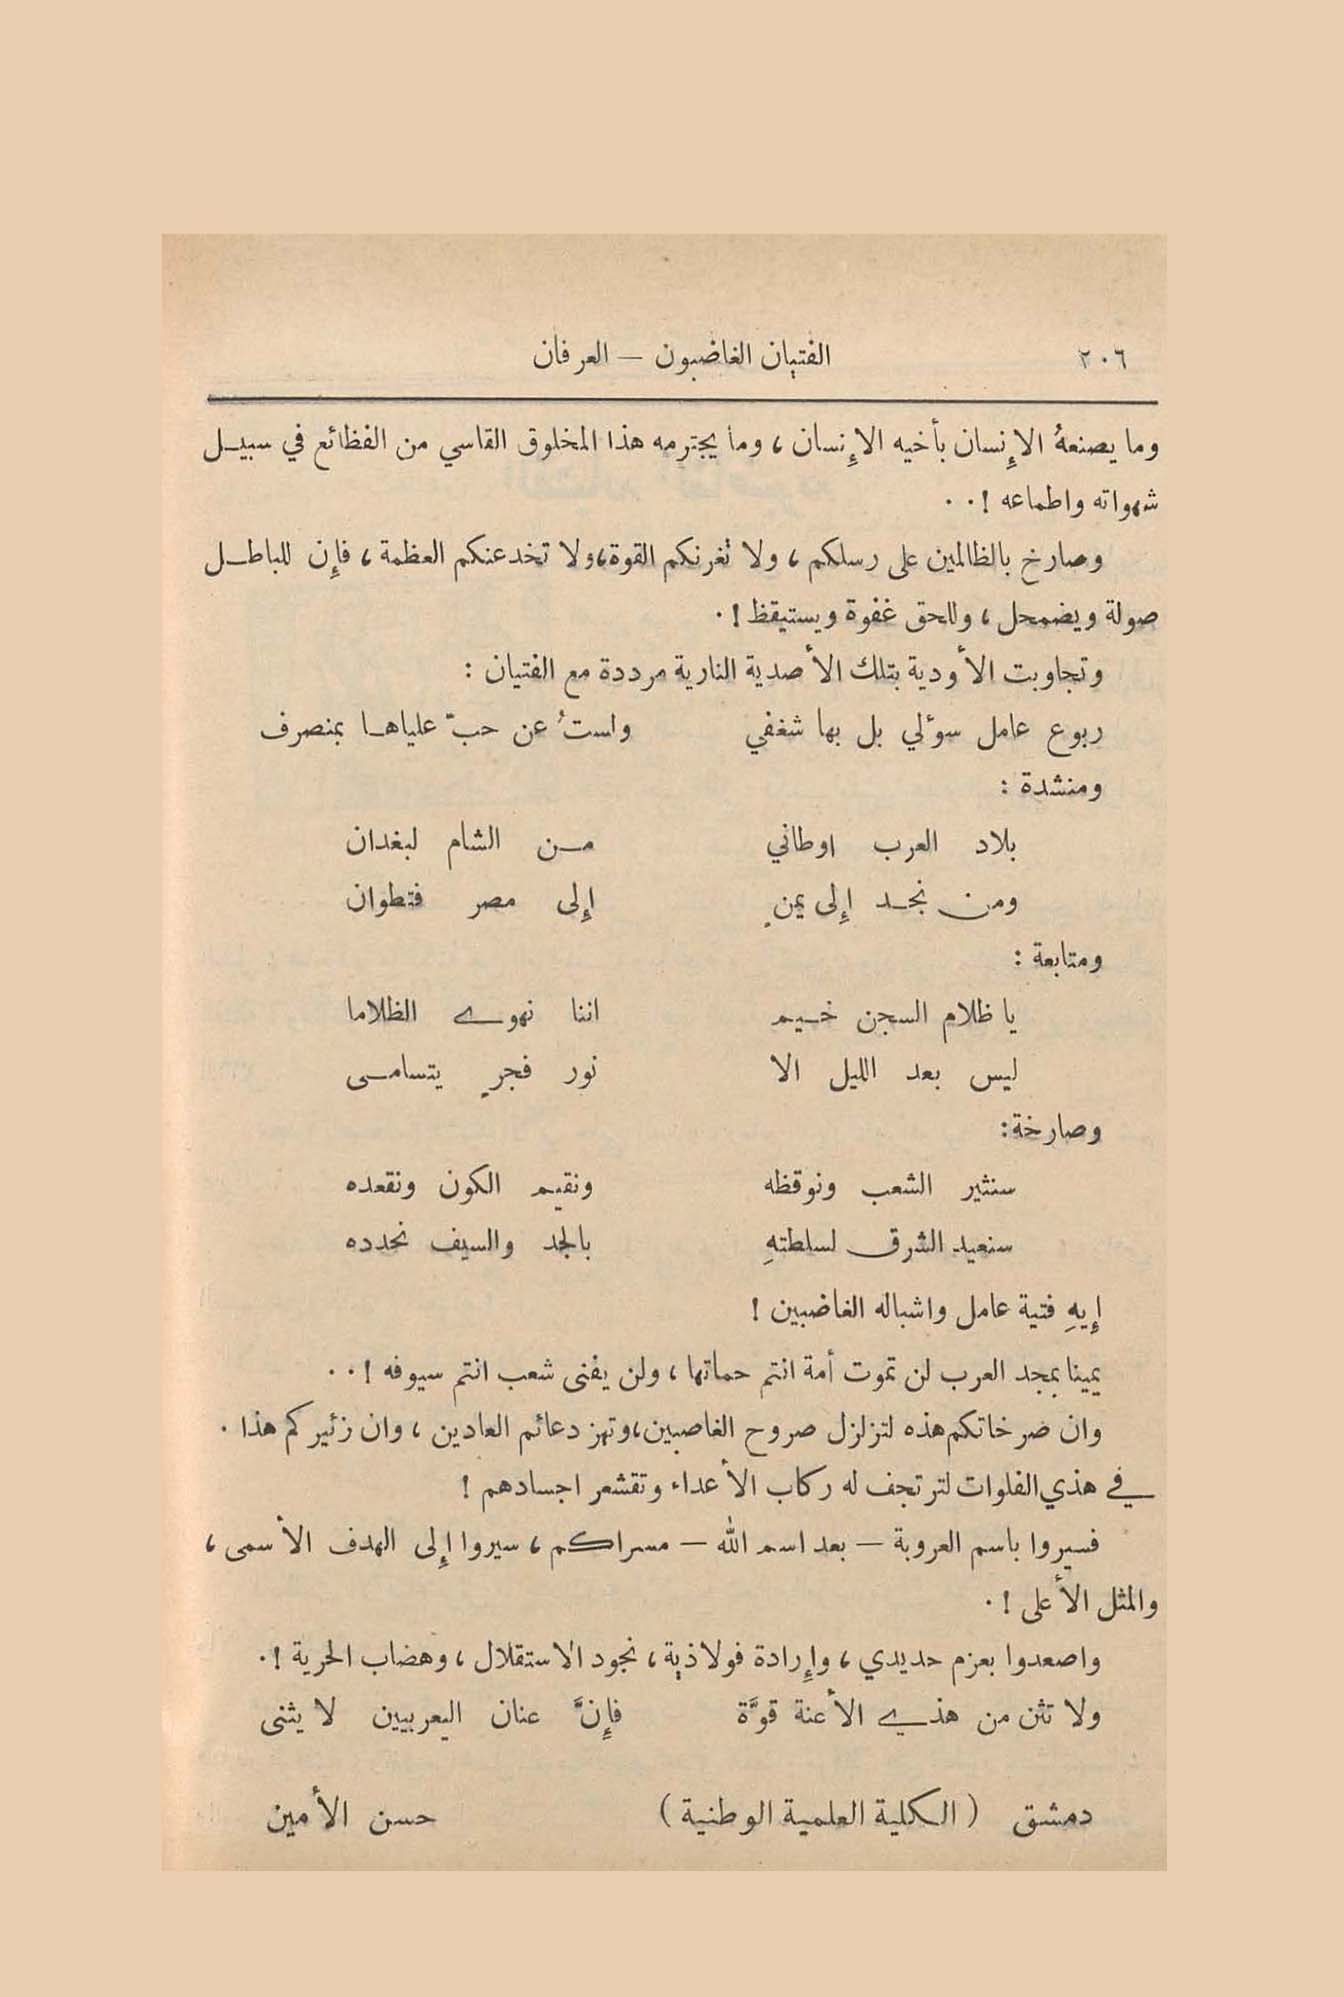 ٢٠٦ الفتيان الغاضبون — العرفان
وما يصنعهُ الإنسان بأخيه الإنسان ، وما يجترمه هذا المخلوق القاسي من الفظائع في سبيـل
شهواته واطماعه ! . .
وصارخ بالظالمين على رسلكم ، ولا تغرنكم القوة ، ولا تخدعنكم العظمة ، فإن للباطـل
صولة ويضمحل ، وللحق غفوة ويستيقظ ! .
وتجاوبت الأودية بتلك الأصدية النارية مرددة مع الفتيان :
ربوع عامل سؤلي بل بها شغفي ولستُ عن حبّ علياهـا بمنصرف
ومنشدة :
بلاد العرب اوطاني مـن الشام لبغدان
ومن نجـد إلى يمنٍ إلى مصر فتطوان
ومتابعة :
يا ظلام السجن خـيم اننا نهوى الظلاما
ليس بعد الليل الا نور فجرٍ يتسامـى
وصارخة :
سنثير الشعب ونوقظه ونقيم الكون ونقعده
سنعيد الشرق لسلطتهِ بالجد والسيف نحدده
إيهِ فتية عامل واشباله الغاضبين !
يمينا بمجد العرب لن تموت أمة انتم حماتها ، ولن يفنى شعب انتم سيوفه ! . .
وان صرخاتكم هذه لتزلزل صروح الغاصبين ، وتهز دعائم العادين ، وان زئيركم هذا .
في هذي الفلوات لترتجف له ركاب الأعداء وتقشعر اجسادهم !
فسيروا باسم العروبة — بعد اسم الله — مسراكم ، سيروا إلى الهدف الأسمى ،
والمثل الأعلى ! .
واصعدوا بعزم حديدي ، وإرادة فولاذية ، نجود الاستقلال ، وهضاب الحرية ! .
ولا تثن من هذي الأعنة قوَّة فإنَّ عنان اليعربيين لا يثنى
دمشق ( الكلية العلمية الوطنية ) حسن الأمين